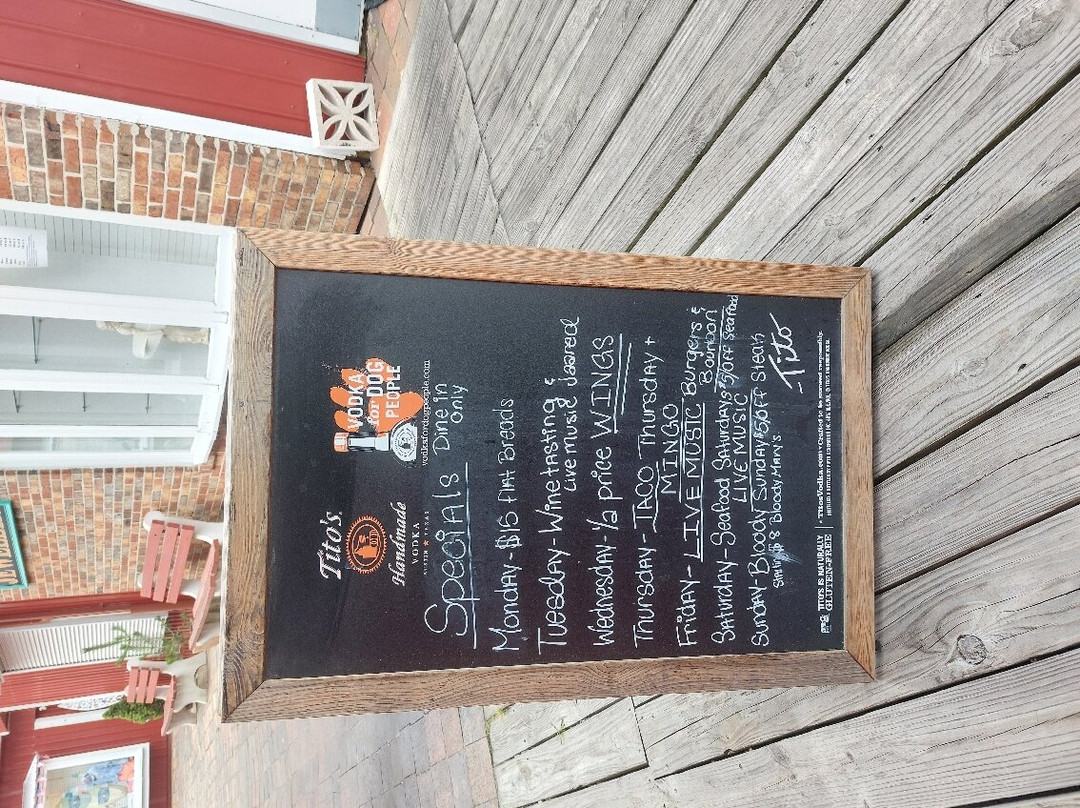 Tito's
Handmade
VODKA
AUSTIN ★ TEXAS
VODKA
for DOG
PEOPLE
vodkafordogpeople.com
Specials Dine in
only
Monday - $15 Flat Breads
Tuesday - Wine tasting &
Live music Jaared
Wednesday - 1/2 price WINGS
Thursday - TACO Thursday +
MINGO
Friday - LIVE MUSIC Burgers &
Bourbon
Saturday - Seafood Saturdays $5 off Seafood
LIVE MUSIC
Sunday - Bloody Sunday $5 OFF Steak
Starting $8 Bloody Mary's.
- Tito
TITO'S IS NATURALLY
GLUTEN-FREE
TitosVodka.com • Crafted to be savored responsibly.